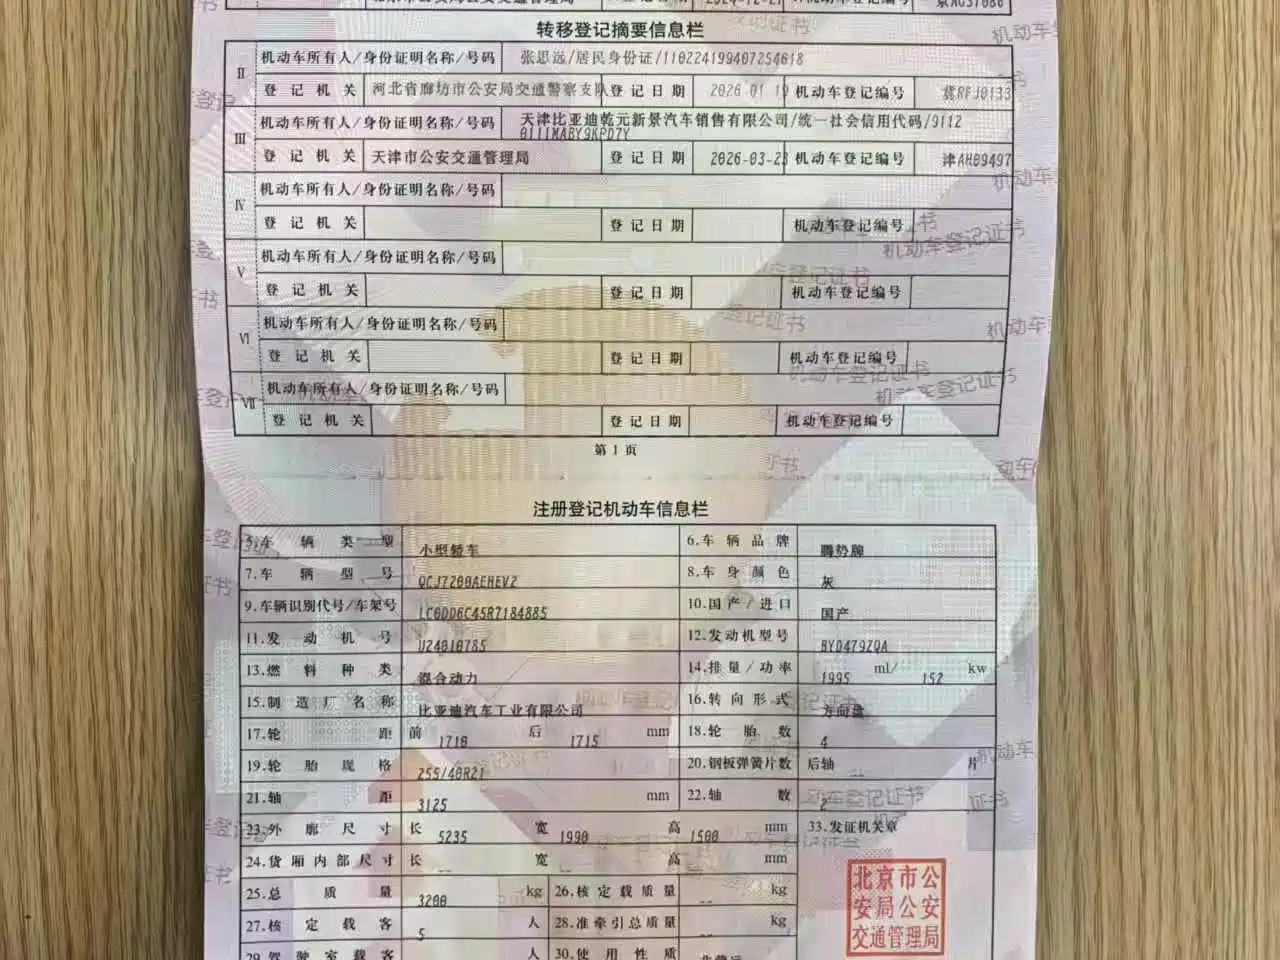 转移登记摘要信息栏
II 机动车所有人/身份证明名称/号码 张思远/居民身份证/110224199407254618
登记机关 河北省廊坊市公安局交通警察支队 登记日期 2026-01-19 机动车登记编号 冀RFJ0133
III 机动车所有人/身份证明名称/号码 天津比亚迪乾元新景汽车销售有限公司/统一社会信用代码/9112
0111MABY9KPD7Y
登记机关 天津市公安交通管理局 登记日期 2026-03-23 机动车登记编号 津AH09497
IV 机动车所有人/身份证明名称/号码
登记机关 登记日期 机动车登记编号
V 机动车所有人/身份证明名称/号码
登记机关 登记日期 机动车登记编号
VI 机动车所有人/身份证明名称/号码
登记机关 登记日期 机动车登记编号
VII 机动车所有人/身份证明名称/号码
登记机关 登记日期 机动车登记编号
第1页
注册登记机动车信息栏
5.车辆类型 小型轿车 6.车辆品牌 腾势牌
7.车辆型号 QCJ7200AEHEV2 8.车身颜色 灰
9.车辆识别代号/车架号 LC0DD6C45R7184885 10.国产/进口 国产
11.发动机号 U24010785 12.发动机型号 BYD479ZQA
13.燃料种类 混合动力 14.排量/功率 1995 ml/ 152 kw
15.制造厂名称 比亚迪汽车工业有限公司 16.转向形式 方向盘
17.轮距 前 1710 后 1715 mm 18.轮胎数 4
19.轮胎规格 255/40R21 20.钢板弹簧片数 后轴 -- 片
21.轴距 3125 mm 22.轴数 2
23.外廓尺寸 长 5235 宽 1990 高 1500 mm 33.发证机关章
24.货厢内部尺寸 长 -- 宽 -- 高 -- mm
25.总质量 3200 kg 26.核定载质量 -- kg
27.核定载客 5 人 28.准牵引总质量 -- kg
29.驾驶室载客 人 30.使用性质 非营运
北京市公
安局公安
交通管理局